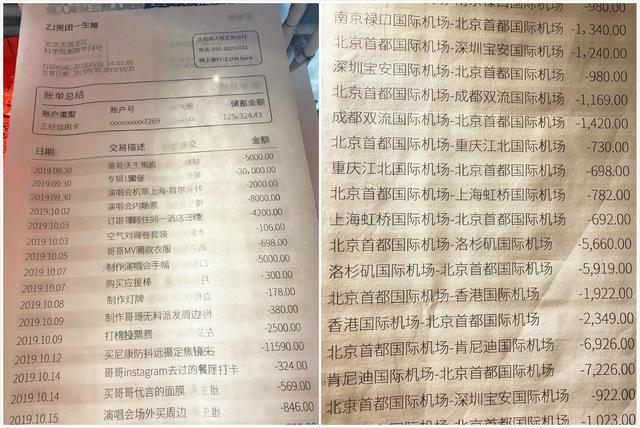 ZJ男团一生推
正经病人院北京分行
北京市海淀区
科学院南路甲14号
电话:010-20191031
网上银行:ZJ7M.bank
打印时间: 2019/10/31 14:01:01
交易日期: 2019/9/30 2019/10/31
账单总结
账户类型 账户号 储蓄金额
正经信用卡 xxxxxxxxxx7269 125,324.43
日期 交易描述 金额
2019.09.30 哥哥庆生集资 -5000.00
2019.09.30 专辑150张 -30,000.00
2019.09.30 演唱会机票上海-首尔 -2000.00
2019.10.02 演唱会内场票 -8000.00
2019.10.03 订跟哥哥住同一酒店三晚 -4200.00
2019.10.03 空气刘海卷套装 -106.00
2019.10.05 哥哥MV同款衣服 -698.00
2019.10.07 制作演唱会手幅 -5000.00
2019.10.08 购买应援棒 -300.00
2019.10.09 制作灯牌 -178.00
2019.10.09 制作哥哥无料派发周边 -380.00
2019.10.12 打榜投票费 -2500.00
2019.10.14 买尼康防抖远摄定焦镜头 -11590.00
2019.10.14 哥哥instagram去过的餐厅打卡 -324.00
2019.10.14 买哥哥代言的面膜 -569.00
2019.10.15 演唱会场外买周边 -846.00
-980.00
南京禄口国际机场-北京首都国际机场 -1,340.00
北京首都国际机场-深圳宝安国际机场 -1,240.00
深圳宝安国际机场-北京首都国际机场 -980.00
北京首都国际机场-成都双流国际机场 -1,169.00
成都双流国际机场-北京首都国际机场 -1,420.00
北京首都国际机场-重庆江北国际机场 -730.00
重庆江北国际机场-北京首都国际机场 -698.00
北京首都国际机场-上海虹桥国际机场 -782.00
上海虹桥国际机场-北京首都国际机场 -692.00
北京首都国际机场-洛杉矶国际机场 -5,660.00
洛杉矶国际机场-北京首都国际机场 -5,919.00
北京首都国际机场-香港国际机场 -1,922.00
香港国际机场-北京首都国际机场 -2,349.00
北京首都国际机场-肯尼迪国际机场 -6,926.00
肯尼迪国际机场-北京首都国际机场 -7,226.00
北京首都国际机场-深圳宝安国际机场 -922.00
-1,023.00